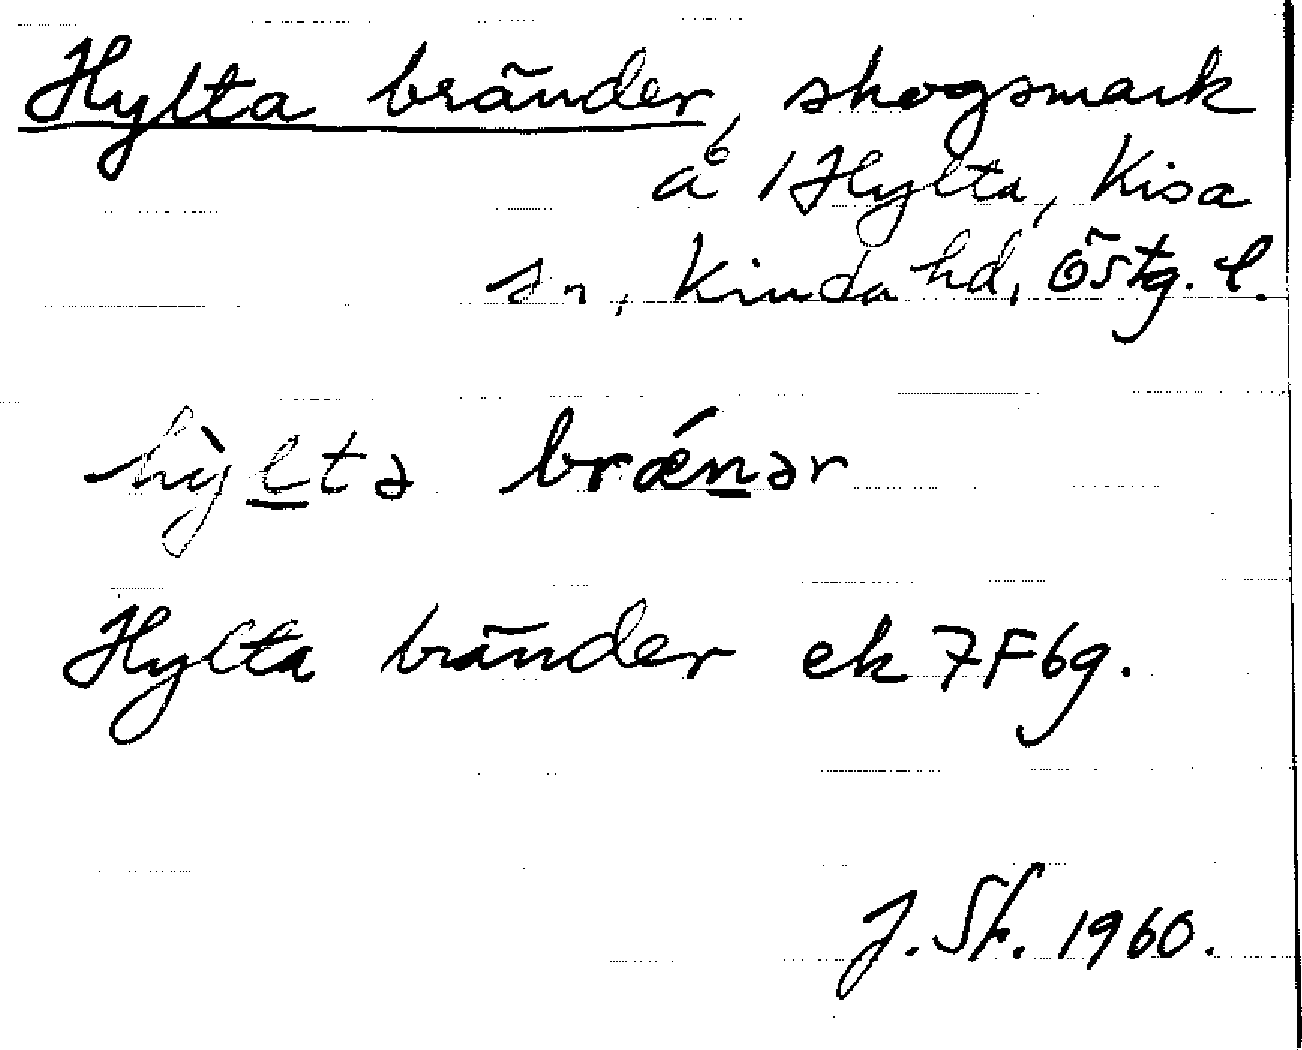 Hylta bränder, skogsmark
å 1 Hylta, Kisa
sn, Kinda hd, Östg. l.
hỳl̲tə brǽn̲ər
Hylta bränder ek 7F6g.
J. St. 1960.